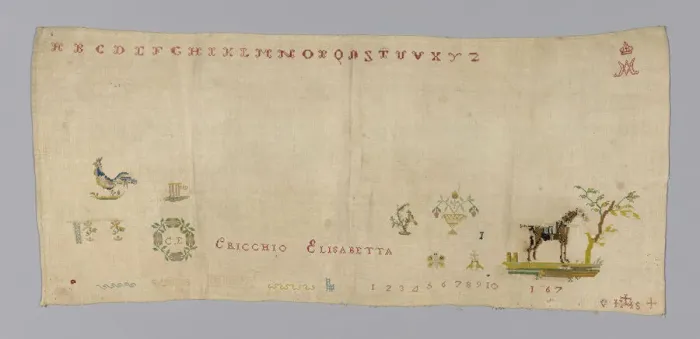 A B C D E F G H I K L M N O P Q R S T U V X Y Z
C E
CRICCHIO ELISABETTA
1 2 3 4 5 6 7 8 9 10 1 6 7